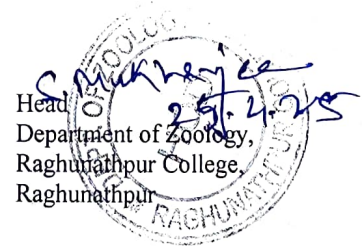 S. Mukherjee
Head
29.4.25
Department of Zoology,
Raghunathpur College,
Raghunathpur
OF ZOOLOGY
RAGHUNATHPUR